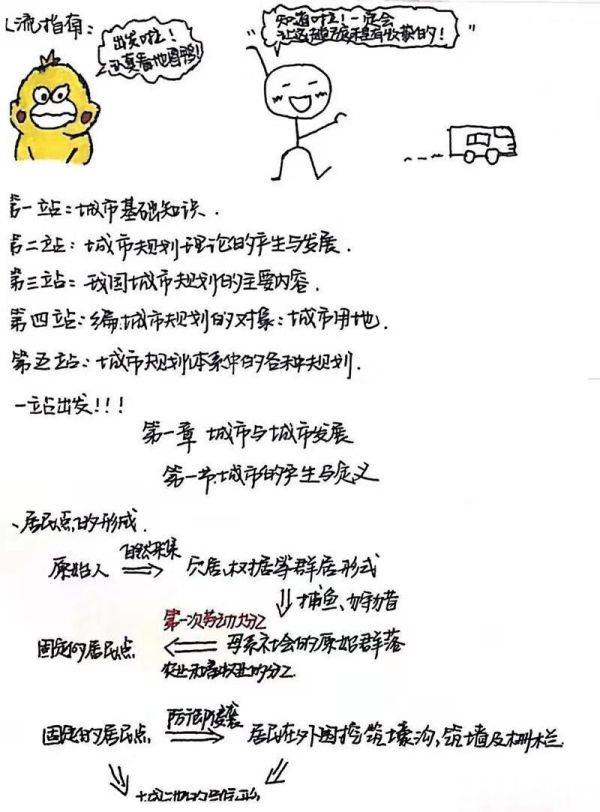 流指南:
出发啦!
认真看地图鸭!
知道啦!一定会
让这趟旅途是有收获的!
第一站:城市基础知识.
第二站:城市规划理论的产生与发展.
第三站:我国城市规划的主要内容.
第四站:编城市规划的对象:城市用地.
第五站:城市规划体系中的各种规划.
一站出发!!!
第一章 城市与城市发展
第一节城市的产生与定义
、居民点的形成.
自然采集
原始人 ⇒ 穴居、树居等群居形式
⇓ 捕鱼、打猎
第一次劳动大分工
固定的居民点 ⇐ 母系社会的原始群落
农业和畜牧业的分工
防御侵袭
固定的居民点 ⇒ 居民在外围挖筑壕沟,筑墙及栅栏
城池的雏形